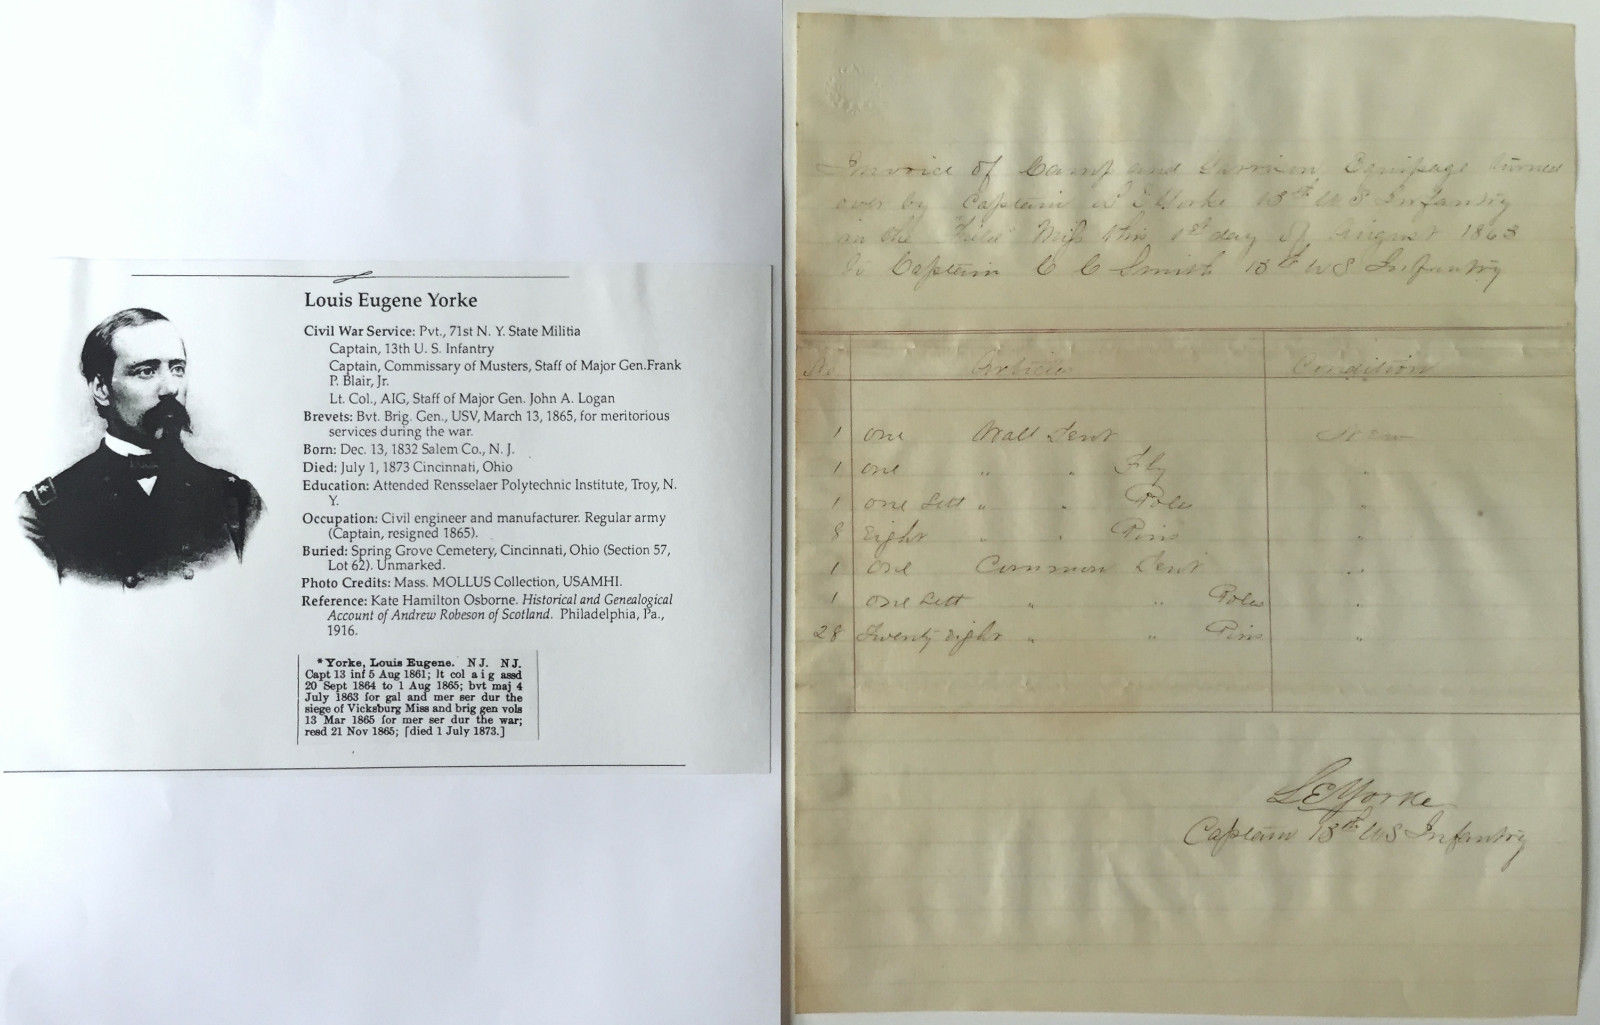 Louis Eugene Yorke
Civil War Service: Pvt., 71st N. Y. State Militia
Captain, 13th U. S. Infantry
Captain, Commissary of Musters, Staff of Major Gen.Frank
P. Blair, Jr.
Lt. Col., AIG, Staff of Major Gen. John A. Logan
Brevets: Bvt. Brig. Gen., USV, March 13, 1865, for meritorious
services during the war.
Born: Dec. 13, 1832 Salem Co., N. J.
Died: July 1, 1873 Cincinnati, Ohio
Education: Attended Rensselaer Polytechnic Institute, Troy, N.
Y.
Occupation: Civil engineer and manufacturer. Regular army
(Captain, resigned 1865).
Buried: Spring Grove Cemetery, Cincinnati, Ohio (Section 57,
Lot 62). Unmarked.
Photo Credits: Mass. MOLLUS Collection, USAMHI.
Reference: Kate Hamilton Osborne. Historical and Genealogical
Account of Andrew Robeson of Scotland. Philadelphia, Pa.,
1916.
*Yorke, Louis Eugene. N J. N J.
Capt 13 inf 5 Aug 1861; lt col a i g assd
20 Sept 1864 to 1 Aug 1865; bvt maj 4
July 1863 for gal and mer ser dur the
siege of Vicksburg Miss and brig gen vols
13 Mar 1865 for mer ser dur the war;
resd 21 Nov 1865; [died 1 July 1873.]
Invoice of Camp and Garrison Equipage turned
over by Captain L E Yorke 13th U S Infantry
in the "Field" Miss this 1st day of August 1863
to Captain C C Smith 13th U S Infantry
No Articles Condition
1 one Wall Tent New
1 one " " Fly "
1 one Sett " " Poles "
8 Eight " " Pins "
1 one Common Tent "
1 one Sett " " Poles "
28 Twenty eight " " Pins "
L E Yorke
Captain 13th U S Infantry